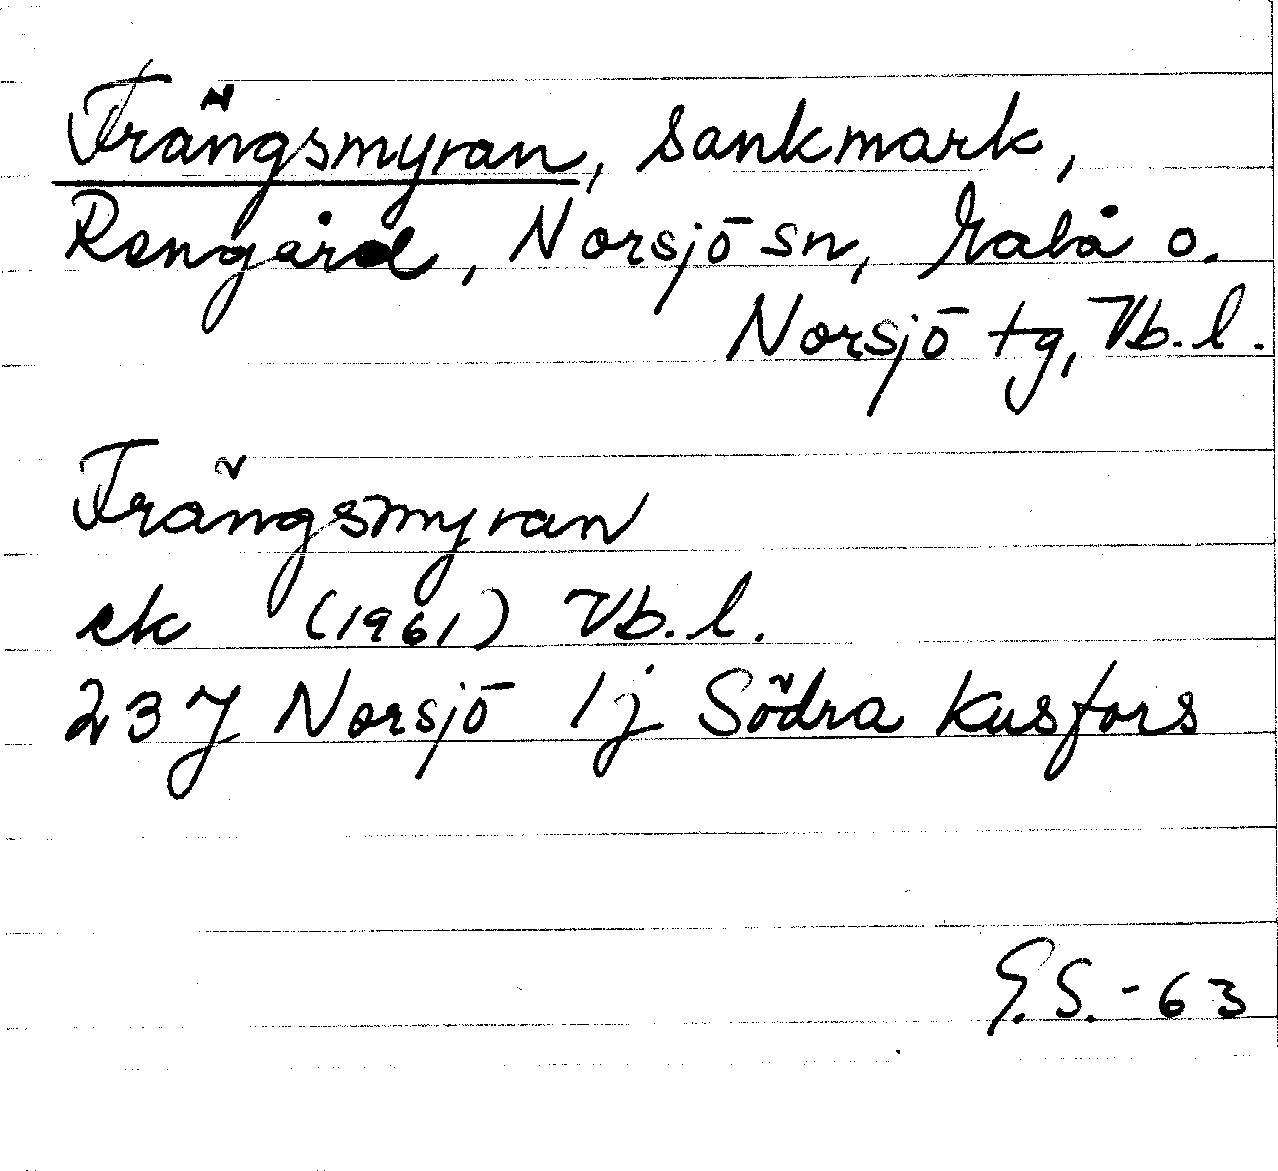 Trängsmyran, sankmark,
Rengård, Norsjö sn, Malå o.
Norsjö tg, Vb. l.
Trängsmyran
ek (1961) Vb. l.
23J Norsjö 1j Södra Kusfors
G.S. -63